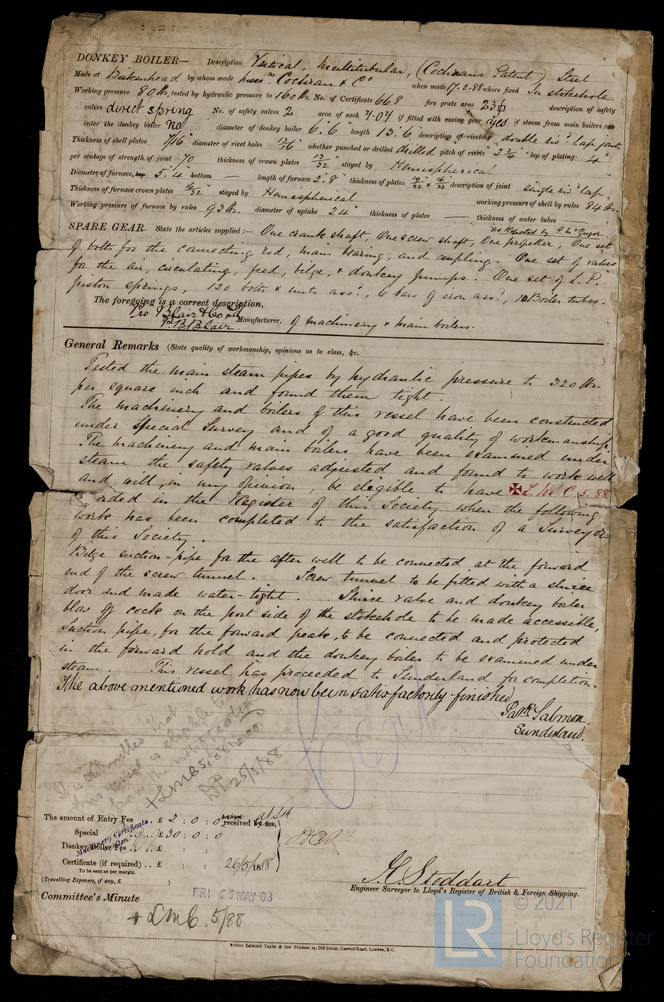 DONKEY BOILER— Description Vertical, Multitubular, (Cochrans Patent) Steel
Made at Birkenhead by whom made Messrs Cochran & Co when made 17.2.88 where fixed In stokehole
Working pressure 80 lbs. tested by hydraulic pressure to 160 lbs. No. of Certificate 668 fire grate area 23 description of safety
valves direct spring No. of safety valves 2 area of each 7.07 if fitted with easing gear yes if steam from main boilers can
enter the donkey boiler no diameter of donkey boiler 6'6" length 13'6 description of riveting double riv. lap joint
Thickness of shell plates 7/16 diameter of rivet holes 13/16 whether punched or drilled drilled pitch of rivets lap of plating 4"
per centage of strength of joint 70 thickness of crown plates 15/32 stayed by Hemispherical
Diameter of furnace, top 5.4 bottom — length of furnace 2.8" thickness of plates description of joint single riv. lap
Thickness of furnace crown plates 16/32 stayed by Hemispherical working pressure of shell by rules 84 lbs.
Working pressure of furnace by rules 93 lbs. diameter of uptake 24" thickness of plates thickness of water tubes
as Reported by P. McGregor
SPARE GEAR. State the articles supplied:— One crank shaft, One screw shaft, One propeller, One set
of bolts for the connecting rod, main bearing, and coupling. One set of valves
for the air, circulating, feed, bilge, & donkey pumps. One set of L.P.
piston springs, 120 bolts & nuts ass., 6 bars of iron ass., Boiler tubes.
The foregoing is a correct description,
Blair & Co Manufacturer. of machinery & main boilers.
Blair
General Remarks (State quality of workmanship, opinions as to class, &c.
Tested the main steam pipes by hydraulic pressure to 320 lbs.
per square inch and found them tight.
The machinery and boilers of this vessel have been constructed
under Special Survey and of a good quality of workmanship.
The machinery and main boilers, have been examined under
steam the safety valves adjusted and found to work well
and will, in my opinion, be eligible to have ✠L.M.C. 5.88
added in the Register of this Society when the following
work has been completed to the satisfaction of a Surveyor
of this Society.
Bilge suction-pipe for the after well to be connected at the forward
end of the screw tunnel. Screw tunnel to be fitted with a sluice
door and made water-tight. Sluice valve and donkey boiler
blow off cock on the port side of the stokehole to be made accessible,
Suction pipe, for the forward peak, to be connected and protected
in the forward hold and the donkey boiler to be examined under
steam. This vessel has proceeded to Sunderland for completion.
The above mentioned work has now been satisfactorily finished
Salmon.
Sunderland.
It is submitted that
this vessel is eligible to
have the notification
+LMC 5/88 recd
25/5/88
The amount of Entry Fee .. £ 2 : 0 : 0 received by me,
Special .. £ 30 : 0 : 0
Donkey Boiler Fee .. £ : :
Certificate (if required) .. £ : : 26/5/1888
To be sent as per margin.
(Travelling Expenses, if any, £ )
Machinery Certificate
Stoddart
Engineer Surveyor to Lloyd's Register of British & Foreign Shipping.
Committee's Minute
FRI 25 MAY 88
+LMC. 5/88
LR © 2021
Lloyd's Register
Foundation